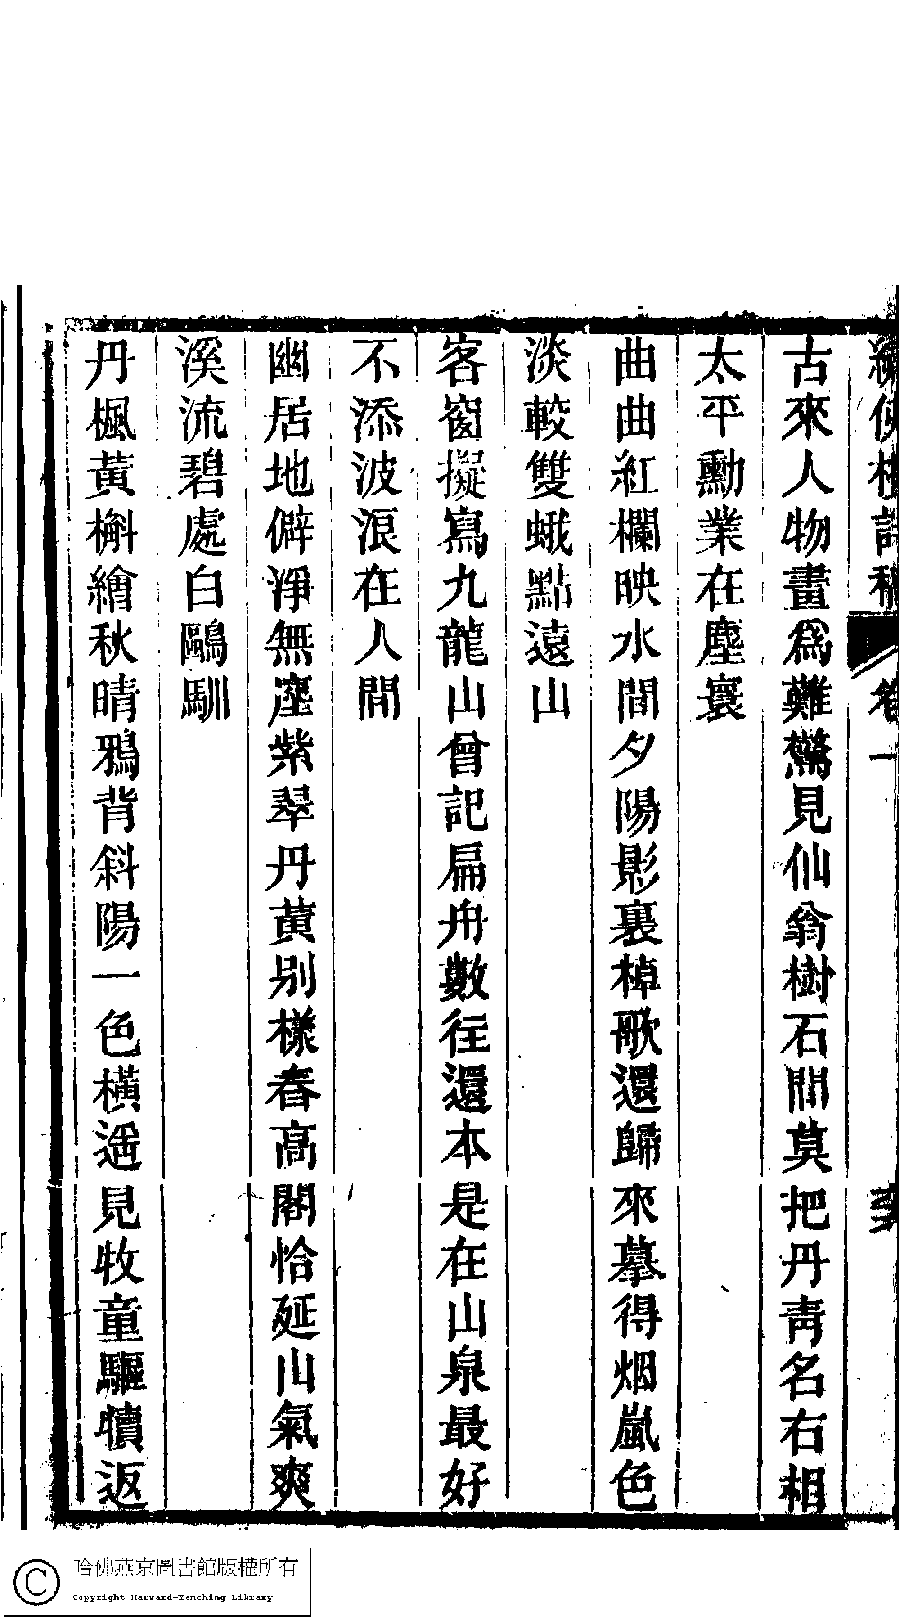 卷一
古來人物畫爲難驚見仙翁樹石間莫把丹靑名右相
太平勳業在塵寰
曲曲紅欄映水間夕陽影裏棹歌還歸來摹得烟嵐色
淡較雙蛾點遠山
客窗擬寫九龍山曾記扁舟數往還本是在山泉最好
不添波浪在人間
幽居地僻淨無塵紫翠丹黃别樣春高閣恰延山氣爽
溪流碧處白鷗馴
丹楓黃槲繪秋晴鴉背斜陽一色橫遥見牧童驅犢返
哈佛燕京圖書館版權所有
Copyright Harvard-Yenching Library